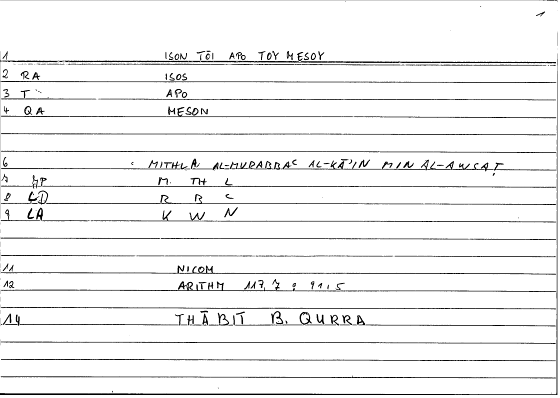 1
1 ISON TŌI APO TOY MESOY
2 RA ISOS
3 T APO
4 QA MESON
6 MITHLĀ AL-MURABBAʿ AL-KĀʾIN MIN AL-AWSAṬ
7 M. TH L
8 R B ʿ
9 LA K W N
11 NICOM
12 ARITHM 117,7 ; 91,5
14 THĀBIT B. QURRA